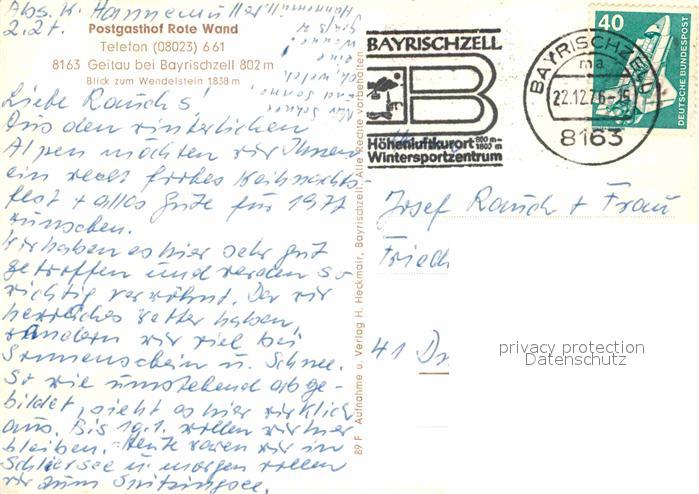 Abs. K. Hannemüller
z. Zt.
Postgasthof Rote Wand
Telefon (08023) 6 61
8163 Geitau bei Bayrischzell 802 m
Blick zum Wendelstein 1838 m
Liebe Rauch's!
Aus den winterlichen
Alpen möchten wir Ihnen
ein recht frohes Weihnachts-
fest + alles Gute für 1977
wünschen.
Wir haben es hier sehr gut
getroffen und werden so
richtig verwöhnt. Da wir
herrliches Wetter haben,
wandern wir viel bei
Sonnenschein u. Schnee.
So wie umstehend abge-
bildet, sieht es hier wirklich
aus. Bis 19.1. wollen wir hier
bleiben. Heute waren wir in
Schliersee u. morgen wollen
wir zum Spitzingsee.
89 F Aufnahme u. Verlag H. Heckmair, Bayrischzell. Alle Rechte vorbehalten
BAYRISCHZELL
B
Höhenluftkurort 800 m-
1800 m
Wintersportzentrum
BAYRISCHZELL
ma
22.12.76-15
8163
40
DEUTSCHE BUNDESPOST
Josef Rauch + Frau
Fried
41 Du
privacy protection
Datenschutz